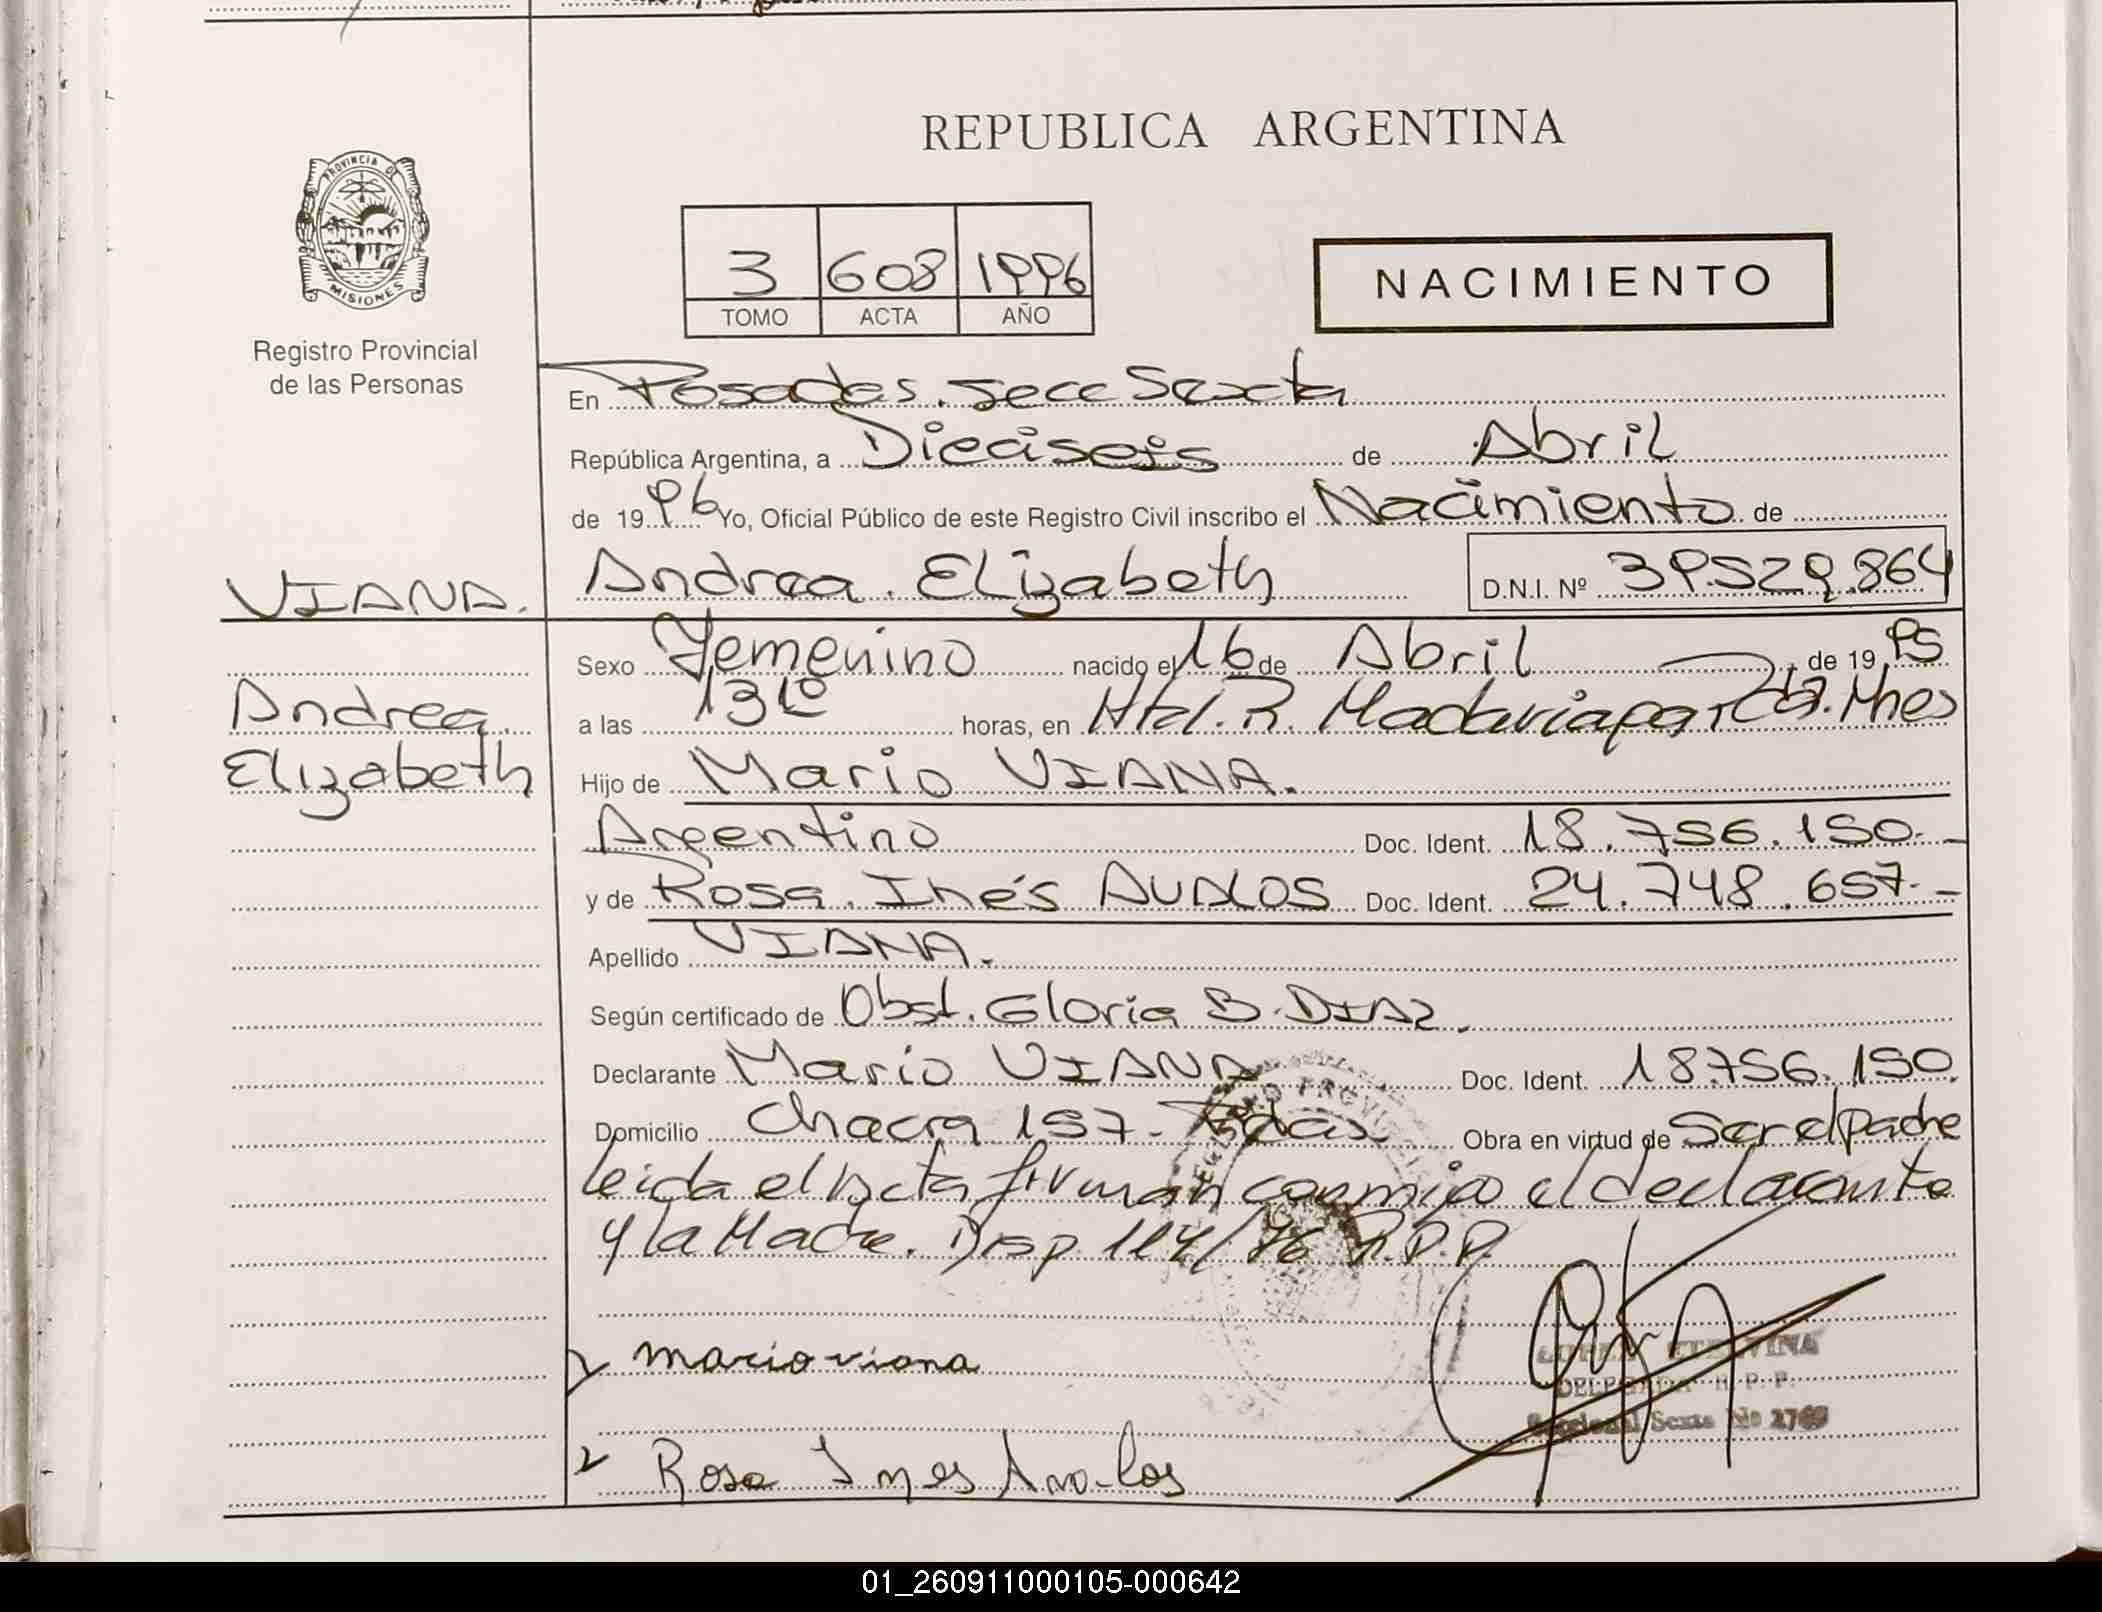 REPUBLICA ARGENTINA
PROVINCIA DE
MISIONES
Registro Provincial
de las Personas
3 608 1996
TOMO ACTA AÑO
NACIMIENTO
En Posadas. secc Sexta
República Argentina, a Dieciseis de Abril
de 1996 Yo, Oficial Público de este Registro Civil inscribo el Nacimiento de
VIANA. Andrea. Elizabeth D.N.I. Nº 39.529.864
Sexo Femenino nacido el 16 de Abril de 1995
Andrea. a las 13 horas, en Htal. R. Madariaga, Pdas. Mnes
Elizabeth Hijo de Mario VIANA.
Argentino Doc. Ident. 18.756.150.-
y de Rosa. Inés AVALOS Doc. Ident. 24.748.657.-
Apellido VIANA.
Según certificado de Obst. Gloria B. DIAZ.
Declarante Mario VIANA Doc. Ident. 18.756.150.
Domicilio Chacra 157. Pdas Obra en virtud de Ser el padre
leida el Acta firman conmigo el declarante
y la Madre. Disp. 114/76 R.P.P.
mario viana
LOPEZ ETELVINA
DELEGADA R. P. P.
Seccional Sexta Nº
Rosa Ines Avalos
01_260911000105-000642